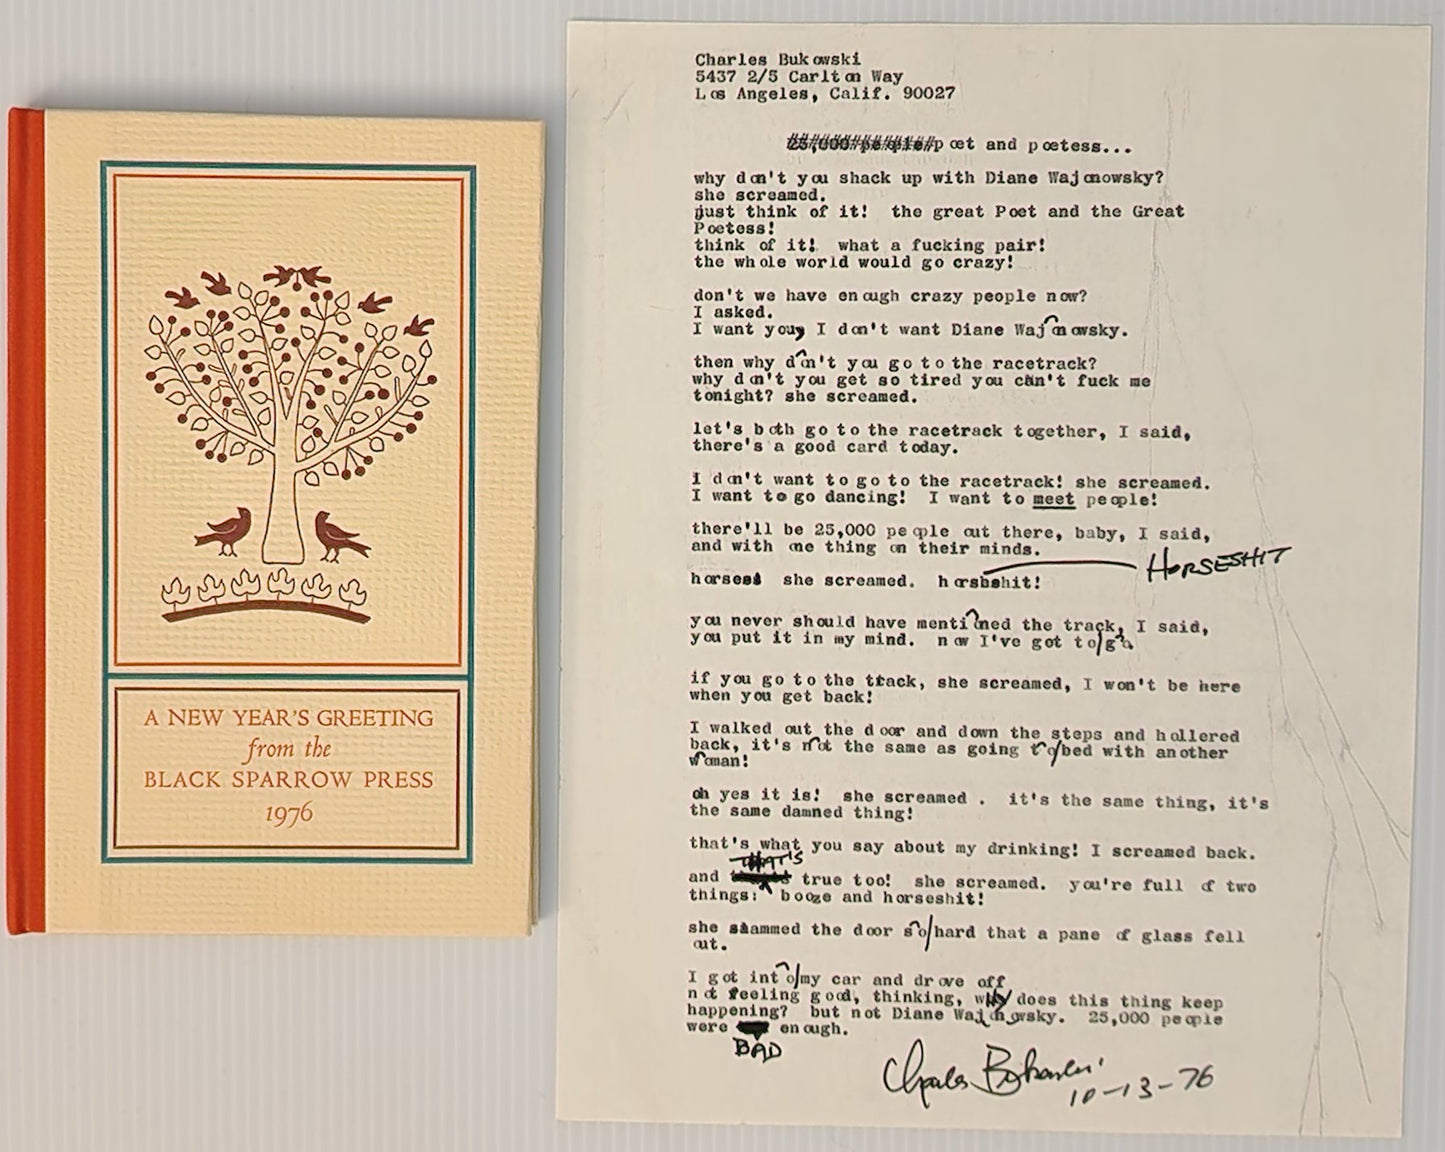 A NEW YEAR'S GREETING
from the
BLACK SPARROW PRESS
1976
Charles Bukowski
5437 2/5 Carlton Way
Los Angeles, Calif. 90027
25,000 people poet and poetess...
why don't you shack up with Diane Wajonowsky?
she screamed.
just think of it! the great Poet and the Great
Poetess!
think of it! what a fucking pair!
the whole world would go crazy!
don't we have enough crazy people now?
I asked.
I want you, I don't want Diane Wajonowsky.
then why don't you go to the racetrack?
why don't you get so tired you can't fuck me
tonight? she screamed.
let's both go to the racetrack together, I said,
there's a good card today.
I don't want to go to the racetrack! she screamed.
I want to go dancing! I want to meet people!
there'll be 25,000 people out there, baby, I said,
and with one thing on their minds.
HORSESHIT
horses! she screamed. horseshit!
you never should have mentioned the track, I said,
you put it in my mind. now I've got to go.
if you go to the track, she screamed, I won't be here
when you get back!
I walked out the door and down the steps and hollered
back, it's not the same as going to bed with another
woman!
oh yes it is! she screamed . it's the same thing, it's
the same damned thing!
that's what you say about my drinking! I screamed back.
THAT'S
and true too! she screamed. you're full of two
things: booze and horseshit!
she slammed the door so hard that a pane of glass fell
out.
I got into my car and drove off
not feeling good, thinking, why does this thing keep
happening? but not Diane Wajonowsky. 25,000 people
were enough.
BAD
Charles Bukowski
10-13-76